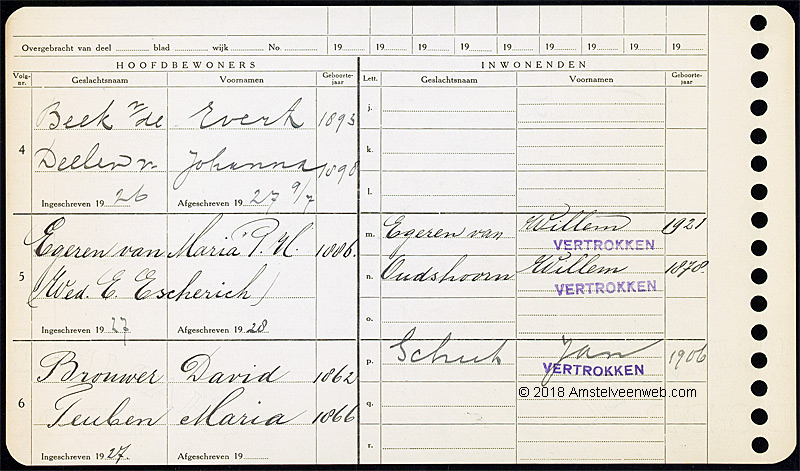 Overgebracht van deel blad wijk No. 19 19 19 19 19 19 19 19 19
HOOFDBEWONERS INWONENDEN
Volg-nr. Geslachtsnaam Voornamen Geboorte-jaar Lett. Geslachtsnaam Voornamen Geboorte-jaar
j.
Beek v de Evert 1893
4 k.
Deelen v. Johanna 1898
l.
Ingeschreven 19 26 Afgeschreven 19 27 9/7
m. Egeren van Willem 1921
VERTROKKEN
Egeren van Maria P. H. 1886.
5 n. Oudshoorn Willem 1878.
VERTROKKEN
(Wed. E. Escherich)
o.
Ingeschreven 19 27 Afgeschreven 19 28
p. Schuit Jan 1906
VERTROKKEN
Brouwer David 1862
© 2018 Amstelveenweb.com
6 q.
Teuben Maria 1866
r.
Ingeschreven 19 27. Afgeschreven 19